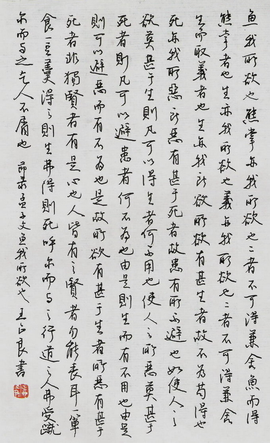 鱼我所欲也熊掌亦我所欲也二者不可得兼舍鱼而得
熊掌者也生亦我所欲也二者不可得兼舍
生而取義者也生亦我所欲所欲有甚于生者故不为苟得也
死亦我所惡所惡有甚于死者故患有所不避也如使人之所
欲莫甚于生則凡可以得生者何不用也使人之所惡莫甚于
死者則凡可以避患者何不为也由是則生而有不用也由是
則可以避患而有不为也是故所欲有甚于生者所惡有甚于
死者非獨賢者有是心也人皆有之賢者勿能丧耳一簞
食一豆羹得之則生弗得則死呼尔而与之行道之人弗受蹴
尔而与之乞人不屑也 節录孟子文鱼我所欲也 良書